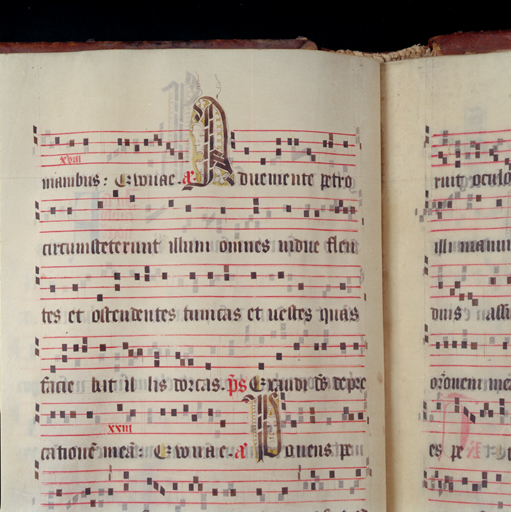 xviii
manibus: Evovae. a Adveniente petro
circumsteterunt illum omnes vidue flen
tes et ostendentes tunicas et vestes quas
facie bat il lis dorcas. ps Exaudi ds depre
xxiii
cationē meā: Evovae. a Ponens pe
ruit oculo
illi manum
duis
orōnem mea
es pe